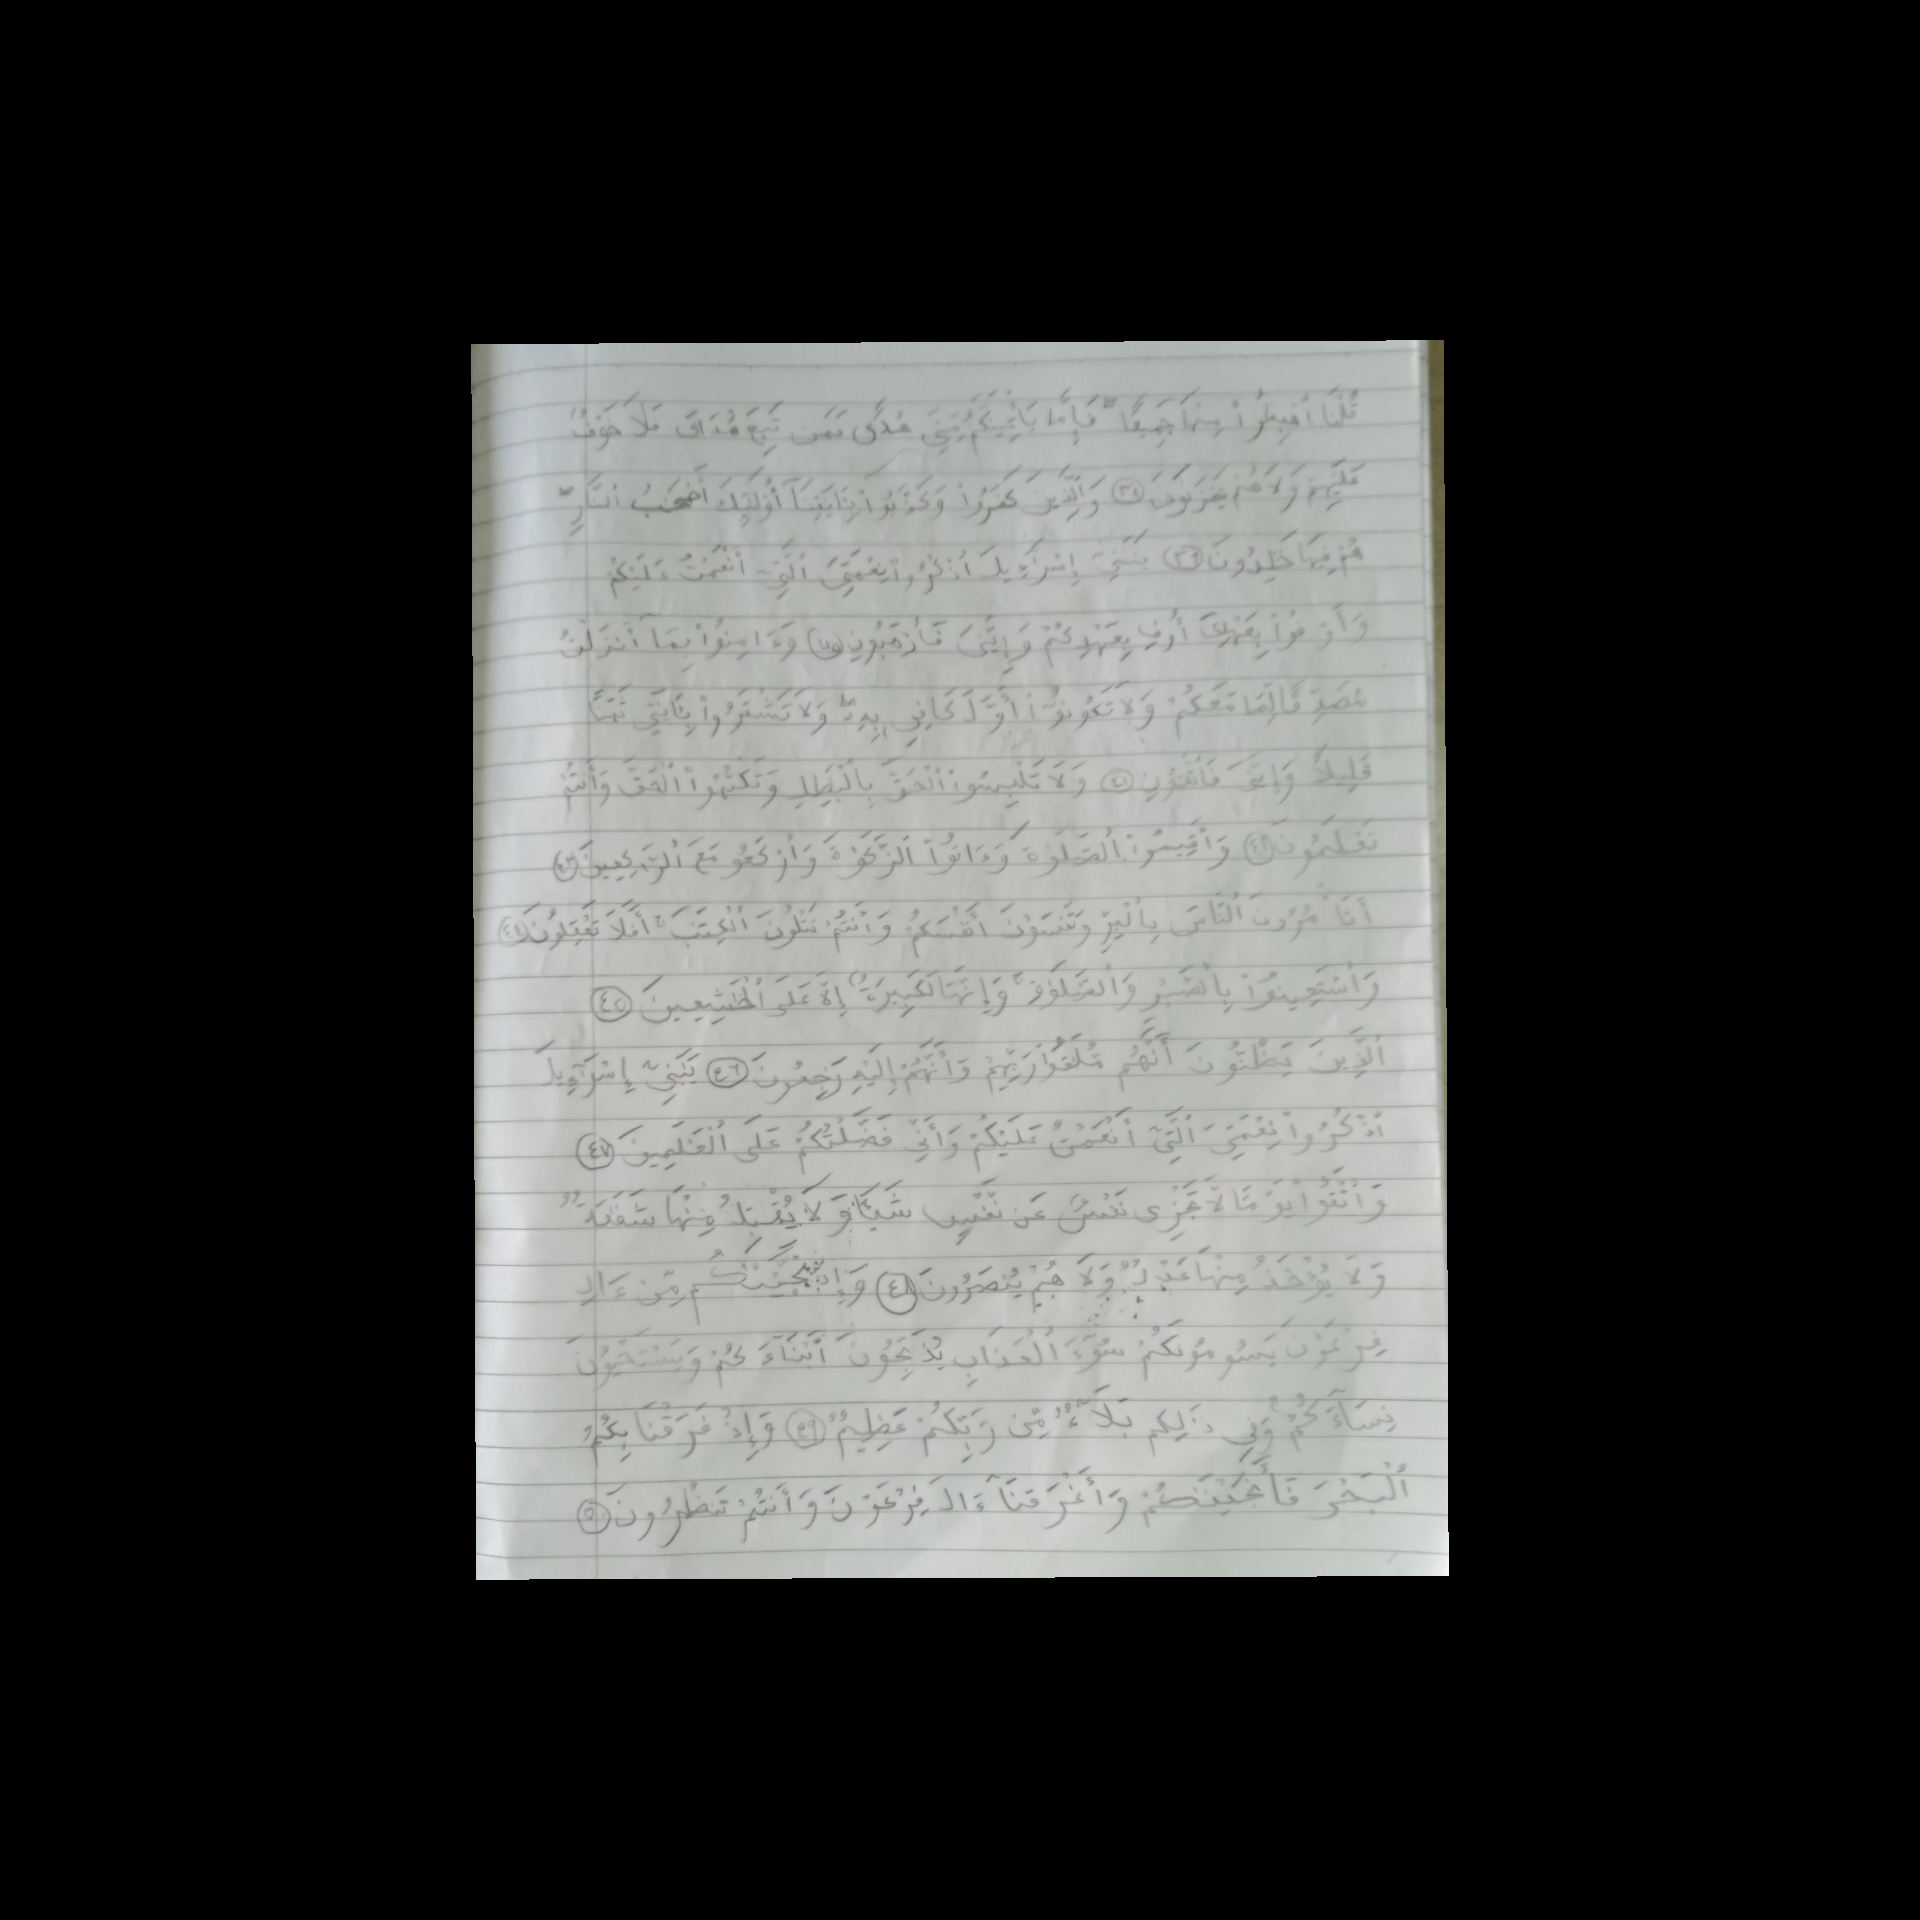 قُلْنَا ٱهْبِطُوا۟ مِنْهَا جَمِيعًا ۖ فَإِمَّا يَأْتِيَنَّكُم مِّنِّى هُدًى فَمَن تَبِعَ هُدَاىَ فَلَا خَوْفٌ
عَلَيْهِمْ وَلَا هُمْ يَحْزَنُونَ ٣٨ وَٱلَّذِينَ كَفَرُوا۟ وَكَذَّبُوا۟ بِـَٔايَٰتِنَآ أُو۟لَٰٓئِكَ أَصْحَٰبُ ٱلنَّارِ ۖ
هُمْ فِيهَا خَٰلِدُونَ ٣٩ يَٰبَنِىٓ إِسْرَٰٓءِيلَ ٱذْكُرُوا۟ نِعْمَتِىَ ٱلَّتِىٓ أَنْعَمْتُ عَلَيْكُمْ
وَأَوْفُوا۟ بِعَهْدِىٓ أُوفِ بِعَهْدِكُمْ وَإِيَّٰىَ فَٱرْهَبُونِ ٤٠ وَءَامِنُوا۟ بِمَآ أَنزَلْتُ
مُصَدِّقًا لِّمَا مَعَكُمْ وَلَا تَكُونُوٓا۟ أَوَّلَ كَافِرٍۭ بِهِۦ ۖ وَلَا تَشْتَرُوا۟ بِـَٔايَٰتِى ثَمَنًا
قَلِيلًا وَإِيَّٰىَ فَٱتَّقُونِ ٤١ وَلَا تَلْبِسُوا۟ ٱلْحَقَّ بِٱلْبَٰطِلِ وَتَكْتُمُوا۟ ٱلْحَقَّ وَأَنتُمْ
تَعْلَمُونَ ٤٢ وَأَقِيمُوا۟ ٱلصَّلَوٰةَ وَءَاتُوا۟ ٱلزَّكَوٰةَ وَٱرْكَعُو مَعَ ٱلرَّٰكِعِينَ ٤٣
أَتَأْمُرُونَ ٱلنَّاسَ بِٱلْبِرِّ وَتَنسَوْنَ أَنفُسَكُمْ وَأَنتُمْ تَتْلُونَ ٱلْكِتَٰبَ ۚ أَفَلَا تَعْقِلُونَ ٤٤
وَٱسْتَعِينُوا۟ بِٱلصَّبْرِ وَٱلصَّلَوٰةِ ۚ وَإِنَّهَا لَكَبِيرَةٌ إِلَّا عَلَى ٱلْخَٰشِعِينَ ٤٥
ٱلَّذِينَ يَظُنُّونَ أَنَّهُم مُّلَٰقُوا۟ رَبِّهِمْ وَأَنَّهُمْ إِلَيْهِ رَٰجِعُونَ ٤٦ يَٰبَنِىٓ إِسْرَٰٓءِيلَ
ٱذْكُرُوا۟ نِعْمَتِىَ ٱلَّتِىٓ أَنْعَمْتُ عَلَيْكُمْ وَأَنِّى فَضَّلْتُكُمْ عَلَى ٱلْعَٰلَمِينَ ٤٧
وَٱتَّقُوا۟ يَوْمًا لَّا تَجْزِى نَفْسٌ عَن نَّفْسٍ شَيْـًٔا وَلَا يُقْبَلُ مِنْهَا شَفَٰعَةٌ
وَلَا يُؤْخَذُ مِنْهَا عَدْلٌ وَلَا هُمْ يُنصَرُونَ ٤٨ وَإِذْ نَجَّيْنَٰكُم مِّنْ ءَالِ
فِرْعَوْنَ يَسُومُونَكُمْ سُوٓءَ ٱلْعَذَابِ يُذَبِّحُونَ أَبْنَآءَكُمْ وَيَسْتَحْيُونَ
نِسَآءَكُمْ ۚ وَفِى ذَٰلِكُم بَلَآءٌ مِّن رَّبِّكُمْ عَظِيمٌ ٤٩ وَإِذْ فَرَقْنَا بِكُمُ
ٱلْبَحْرَ فَأَنجَيْنَٰكُمْ وَأَغْرَقْنَآ ءَالَ فِرْعَوْنَ وَأَنتُمْ تَنظُرُونَ ٥٠